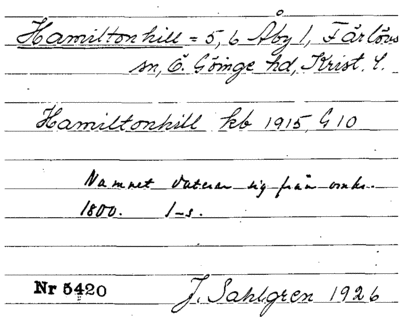 Hamiltonhill = 5, 6 Åby 1, Färlövs
sn, Ö. Göinge hd, Krist. l.
Hamiltonhill kb 1915, G 10
Namnet daterar sig från omkr.
1800. 1-s.
Nr 5420 J. Sahlgren 1926